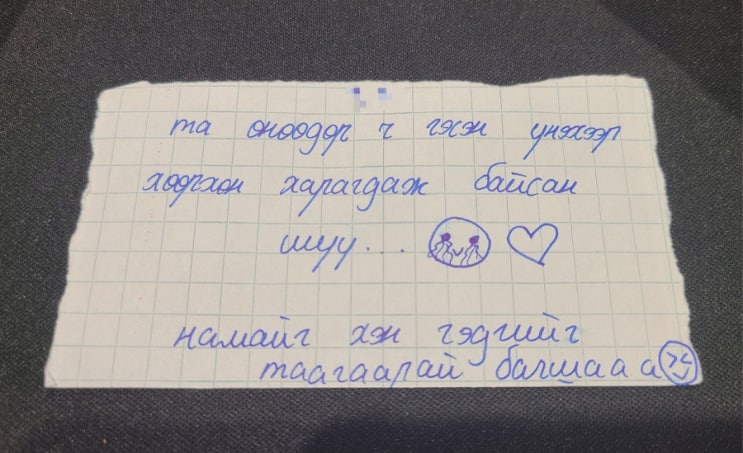 та өнөөдөр ч гэсэн үнэхээр
хөөрхөн харагдаж байсан
шүү...
намайг хэн гэдгийг
таагаарай багшааа а